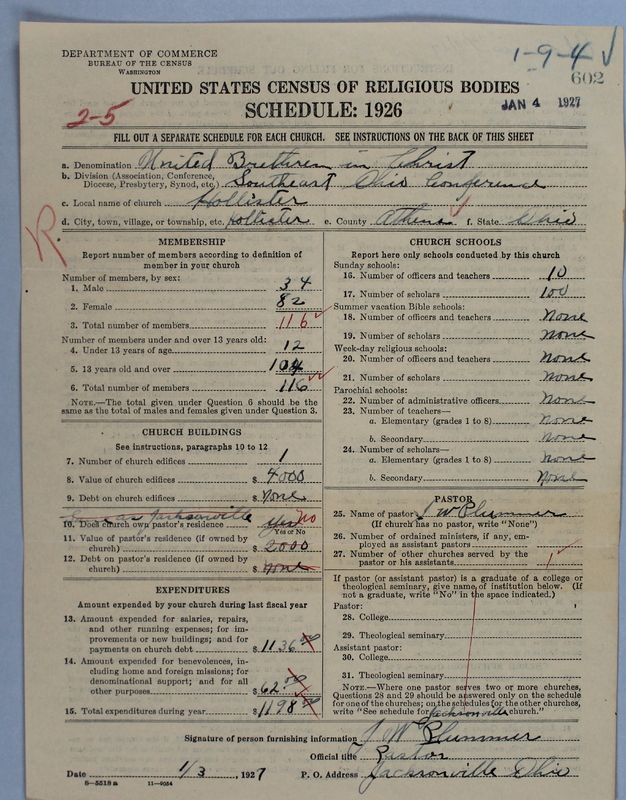 DEPARTMENT OF COMMERCE
BUREAU OF THE CENSUS
WASHINGTON
1-9-4
602
UNITED STATES CENSUS OF RELIGIOUS BODIES
SCHEDULE: 1926
JAN 4 1927
2-5
FILL OUT A SEPARATE SCHEDULE FOR EACH CHURCH. SEE INSTRUCTIONS ON THE BACK OF THIS SHEET
a. Denomination United Brethren in Christ
b. Division (Association, Conference, Diocese, Presbytery, Synod, etc.) Southeast Ohio Conference
c. Local name of church Hollister
d. City, town, village, or township, etc. Hollister e. County Athens f. State Ohio
R
MEMBERSHIP
Report number of members according to definition of
member in your church
Number of members, by sex:
1. Male 34
2. Female 82
3. Total number of members 116
Number of members under and over 13 years old:
4. Under 13 years of age 12
5. 13 years old and over 104
6. Total number of members 116
NOTE.—The total given under Question 6 should be
same as the total of males and females given under Question 3.
CHURCH BUILDINGS
See instructions, paragraphs 10 to 12
7. Number of church edifices 1
8. Value of church edifices $ 4000
9. Debt on church edifices $ None
Jacksonville
10. Does church own pastor's residence Yes No
Yes or No
11. Value of pastor's residence (if owned by
church) $ 2000
12. Debt on pastor's residence (if owned by
church) $ None
EXPENDITURES
Amount expended by your church during last fiscal year
13. Amount expended for salaries, repairs,
and other running expenses; for im-
provements or new buildings; and for
payments on church debt $ 1136.00
14. Amount expended for benevolences, in-
cluding home and foreign missions; for
denominational support; and for all
other purposes $ 62.00
15. Total expenditures during year $ 1198.00
CHURCH SCHOOLS
Report here only schools conducted by this church
Sunday schools:
16. Number of officers and teachers 10
17. Number of scholars 100
Summer vacation Bible schools:
18. Number of officers and teachers None
19. Number of scholars None
Week-day religious schools:
20. Number of officers and teachers None
21. Number of scholars None
Parochial schools:
22. Number of administrative officers None
23. Number of teachers—
a. Elementary (grades 1 to 8) None
b. Secondary None
24. Number of scholars—
a. Elementary (grades 1 to 8) None
b. Secondary None
PASTOR
25. Name of pastor J W Plummer
(If church has no pastor, write "None")
26. Number of ordained ministers, if any, em-
ployed as assistant pastors
27. Number of other churches served by the
pastor or his assistants 1
If pastor (or assistant pastor) is a graduate of a college or
theological seminary, give name of institution below. (If
not a graduate, write "No" in the space indicated.)
Pastor:
28. College
29. Theological seminary
Assistant pastor:
30. College
31. Theological seminary
NOTE.—Where one pastor serves two or more churches,
Questions 28 and 29 should be answered only on the schedule
for one of the churches; on the schedules for the other churches,
write "See schedule for Jacksonville church."
Signature of person furnishing information J W Plummer
Official title Pastor
Date 1/3, 1927 P. O. Address Jacksonville Ohio
8-5518a 11-9054